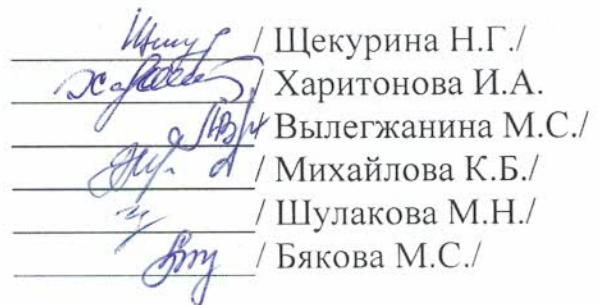 / Щекурина Н.Г./
/ Харитонова И.А.
Вылегжанина М.С./
/ Михайлова К.Б./
/ Шулакова М.Н./
/ Бякова М.С./